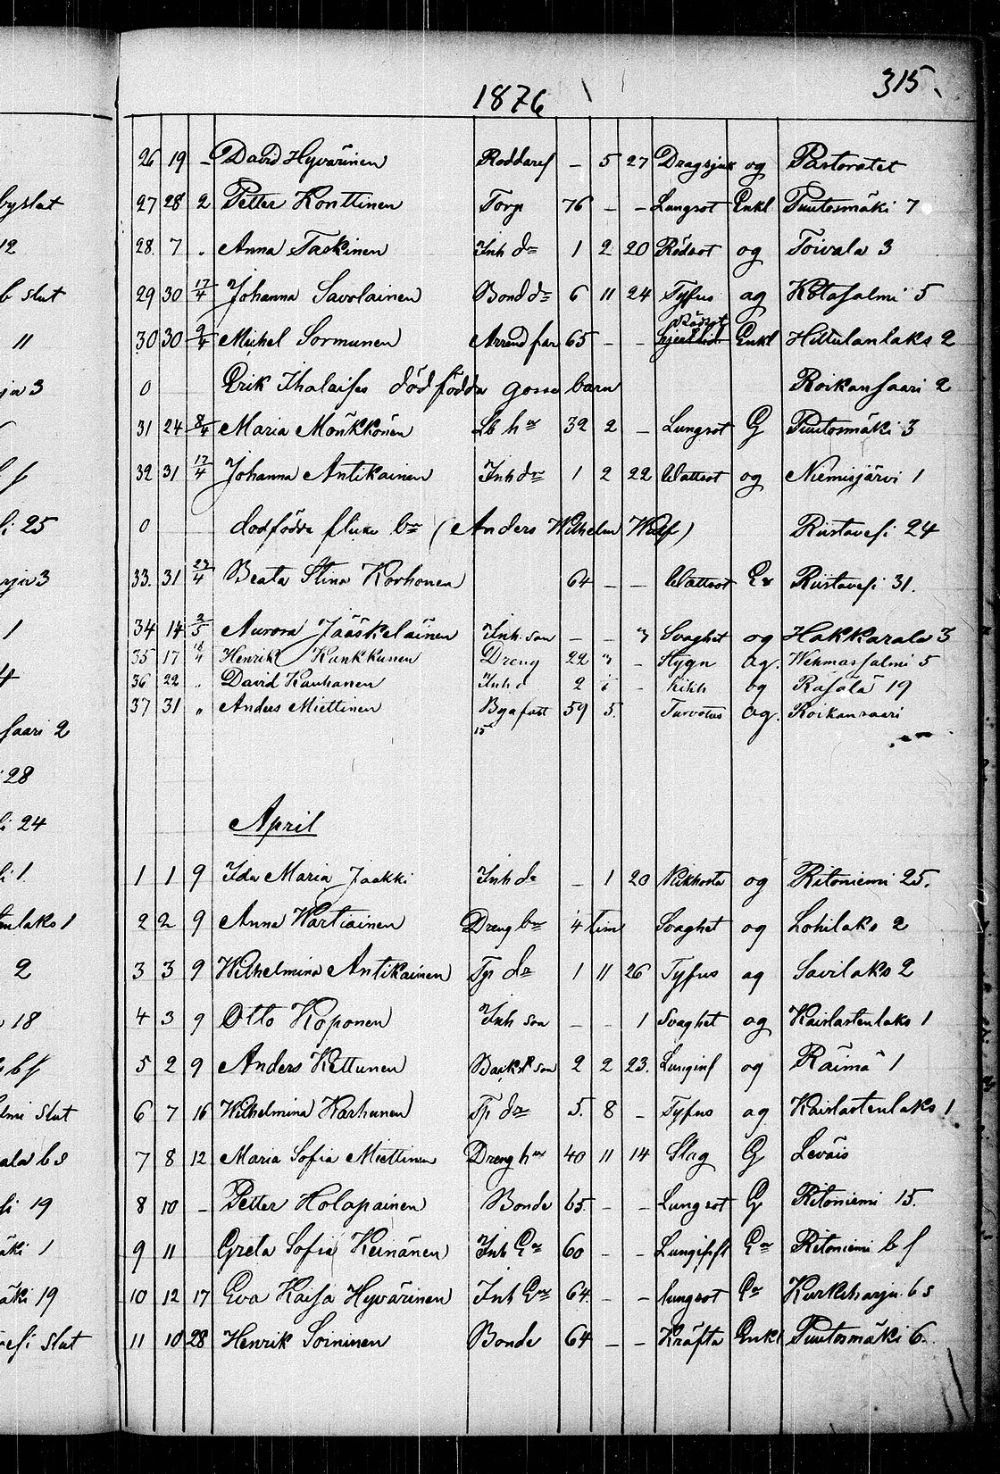 315.
1876
26 19 – David Hyvärinen – 5 27 og Pastoratet
27 28 2 Petter Konttinen Torp 76 – – Lungsot Enkl Puutosmäki 7
28 7 . Anna Taskinen Inh dr 1 2 20 Rödsot og Toivala 3
29 30 17/4 Johanna Savolainen Bond dr 6 11 24 Tyfus og Kotasalmi 5
30 30 9/4 Michel Sormunen 65 – – Rödsot Enkl Hittulanlaks 2
0 Erik Ihalaises dödfödda gosse barn Roikansaari 2
31 24 8/4 Maria Mönkkönen Lb hu 32 2 – Lungsot G Puutosmäki 3
32 31 17/4 Johanna Antikainen Inh dr 1 2 22 Wattsot og Niemisjärvi 1
0 dödfödda flicka br (Anders Wilhelm Wulf) Riistavesi 24
33. 31 23/4 Beata Stina Korhonen 64 – – Wattsot Ea Riistavesi 31.
34 14 2/5 Aurora Jääskeläinen Inh. son – – 3 Svaghet og Hakkarala 3
35 17 Henrik Kunkkunen Dreng 22 3 – Stygn og. Wehmassalmi 5
36 22 . David Kauhanen Inh 2 – Kikh og Räsälä 19
37 31 " Anders Miettinen 59 5. og. Roikansaari
April
1 1 9 Ida Maria Jaakki Inh dr – 1 20 Kikhosta og Ritoniemi 25.
2 2 9 Anna Wartiainen Dreng br 4 tim Svaghet og Lohilaks 2
3 3 9 Wilhelmina Antikainen Tp dr 1 11 26 Tyfus og Savilaks 2
4 3 9 Otto Koponen Inh son – – 1 Svaghet og Kaislastenlaks 1
5 2 9 Anders Kettunen son 2 2 23. Lunginf og Räimä 1
6 7 16 Wilhelmina Karhunen Tp dr 5. 8 – Tyfus og Kaislastenlaks 1
7 8 12 Maria Sofia Miettinen Dreng hu 40 11 14 Slag G Leväis
8 10 – Petter Holapainen Bonde 65. – – Lungsot G Ritoniemi 15.
9 11 Greta Sofia Keinänen Inh Ea 60 – – Ea Ritoniemi bf
10 12 17 Eva Kaisa Hyvärinen Inh Ea 64 – – Lungsot Ea Kurkiharju bs
11 10 28 Henrik Soininen Bonde 64 – – Kräfta Enkl Puutosmäki 6.
byslut
12
b slut
11
3
25
3
1
4
saari 2
28
24
1.
laks 1
2
18
bf
slut
19
1
19
slut